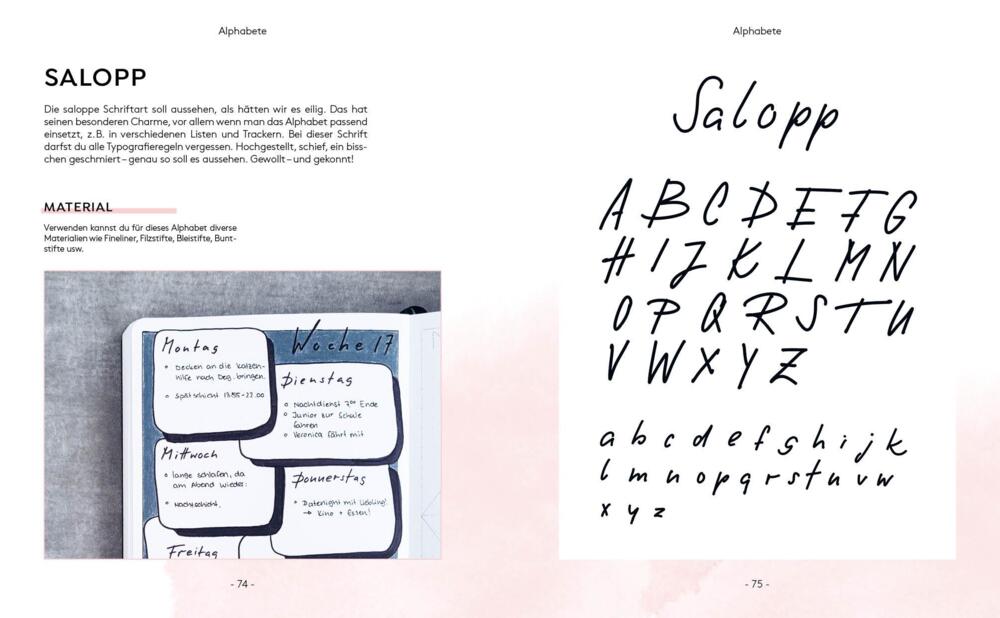 Alphabete
SALOPP
Die saloppe Schriftart soll aussehen, als hätten wir es eilig. Das hat
seinen besonderen Charme, vor allem wenn man das Alphabet passend
einsetzt, z. B. in verschiedenen Listen und Trackern. Bei dieser Schrift
darfst du alle Typografieregeln vergessen. Hochgestellt, schief, ein biss-
chen geschmiert – genau so soll es aussehen. Gewollt – und gekonnt!
MATERIAL
Verwenden kannst du für dieses Alphabet diverse
Materialien wie Fineliner, Filzstifte, Bleistifte, Bunt-
stifte usw.
Woche 17
Montag
Decken an die Katzen-
hilfe nach Deg. bringen.
Spätschicht 13.55-22.00
Dienstag
Nachtdienst 7⁰⁰ Ende
Junior zur Schule
fahren
Veronica fährt mit
Mittwoch
lange schlafen, da
am Abend wieder:
Nachtschicht.
Donnerstag
Datenight mit Liebling!
→ Kino + Essen!
Freitag
- 74 -
Alphabete
Salopp
A B C D E F G
H I J K L M N
O P Q R S T U
V W X Y Z
a b c d e f g h i j k
l m n o p q r s t u v w
x y z
- 75 -